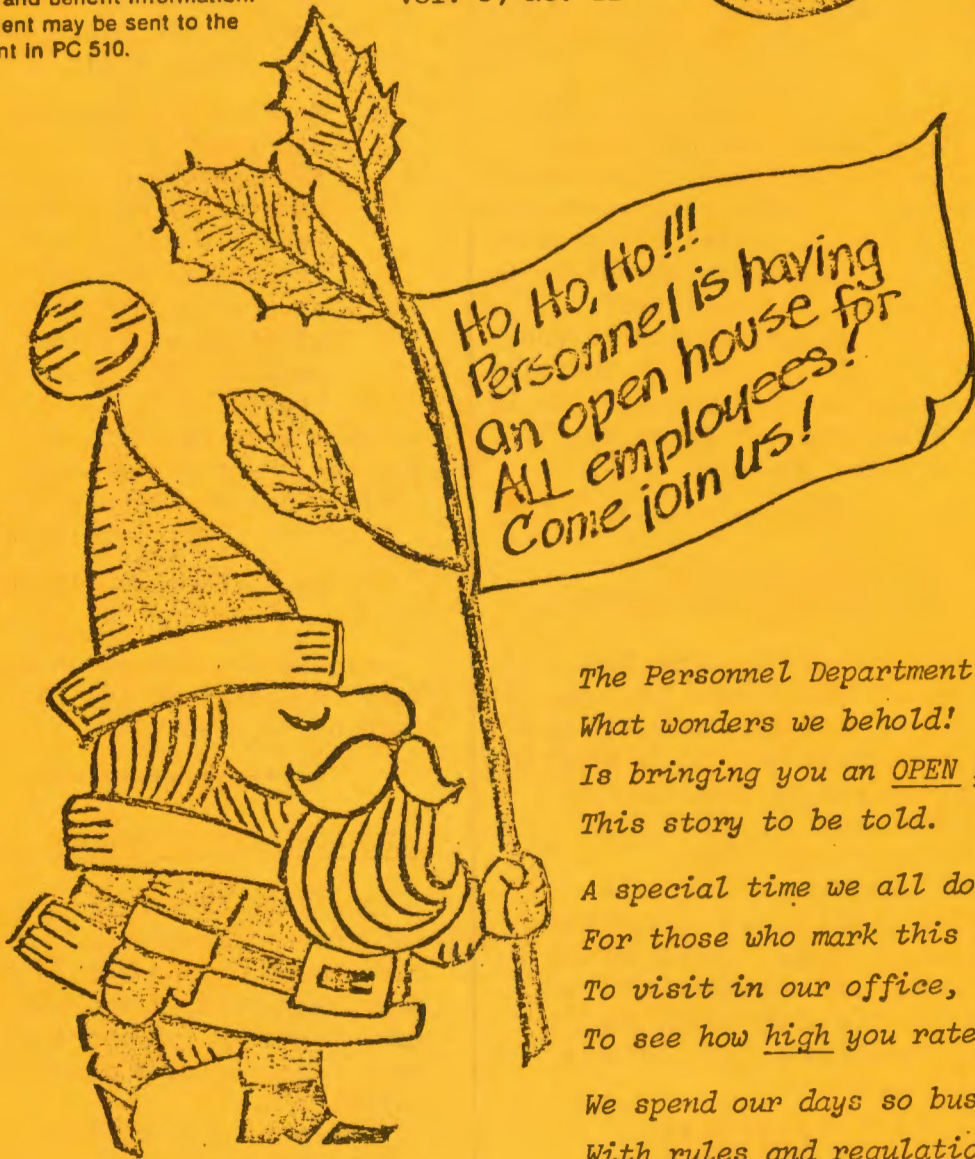 and benefit information.
ent may be sent to the
nt in PC 510.
Ho, Ho, Ho!!!
Personnel is having
an open house for
ALL employees!
Come join us!
The Personnel Department
What wonders we behold!
Is bringing you an OPEN
This story to be told.
A special time we all do
For those who mark this
To visit in our office,
To see how high you rate
We spend our days so bus
With rules and regulatio